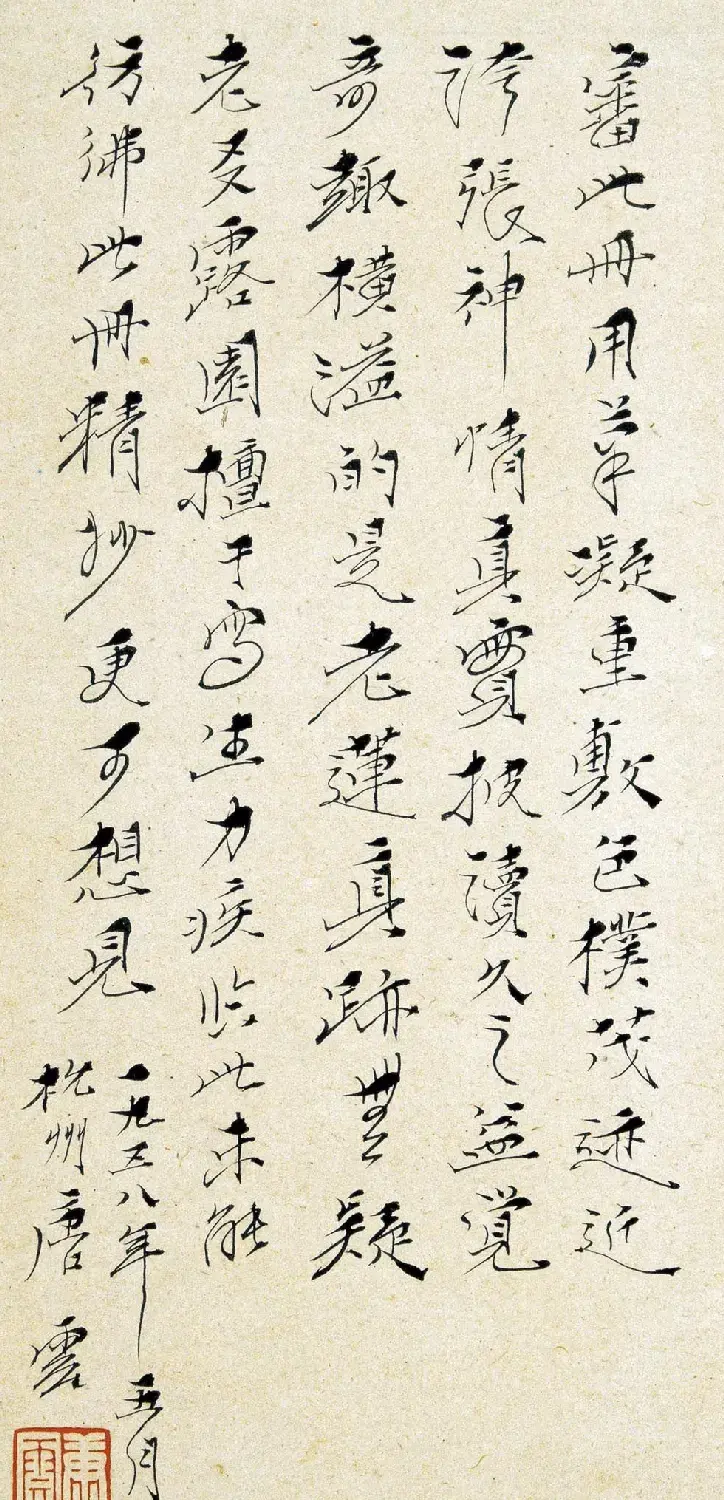 審此冊用筆凝重敷色樸茂迹近
誇張神情真實披讀久之益覺
奇趣橫溢的是老蓮真跡無疑
老友露園擅于寫生力疾臨此未能
彷彿此冊精妙更可想見
一九五八年五月
杭州唐雲
唐雲